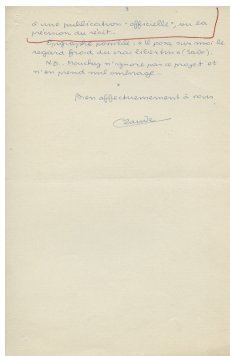 à une publication "officielle", ou la
pression du récit..
Epigraphe possible : "Il posa sur moi le
regard froid du vrai libertin" (Sade).
NB. n'ignore pas ce projet et
n'en prend nul ombrage.
Bien affectueusement à vous
Claude